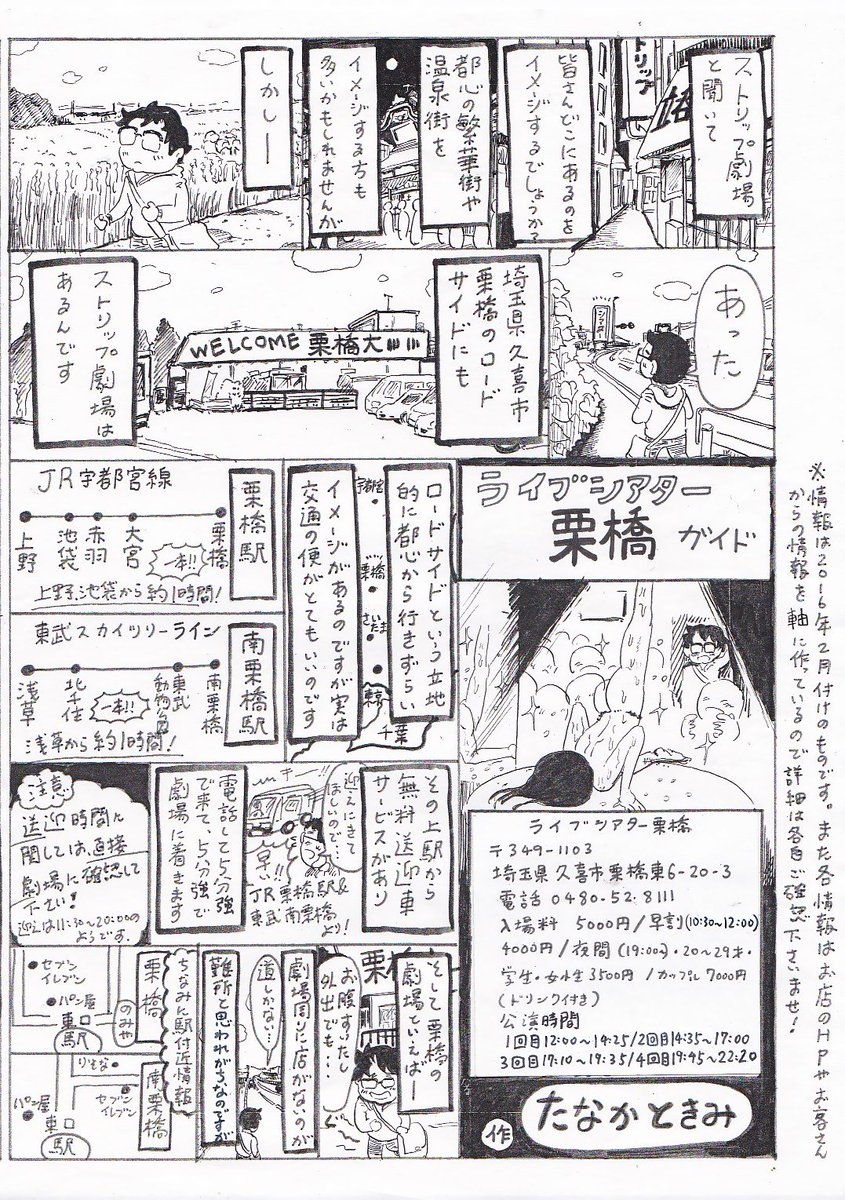 ストリップ劇場
と聞いて
トリップ
皆さんどこにあるのを
イメージするでしょうか?
都心の繁華街や
温泉街を
イメージする方も
多いかもしれませんが
しかしー
あった
埼玉県久喜市
栗橋のロード
サイドにも
WELCOME 栗橋大
ストリップ劇場は
あるんです
ライブシアター
栗橋 ガイド
ロードサイドという立地
的に都心から行きずらい
イメージがあるのですが実は
交通の便がとてもいいのです
宇都宮
栗橋
さいたま
東京
千葉
栗橋駅
JR宇都宮線
上野
池袋
赤羽
大宮
栗橋
一本!!
上野、池袋から約1時間!
南栗橋駅
東武スカイツリーライン
浅草
北千住
東武
動物公園
南栗橋
一本!!
浅草から約1時間!
その上駅から
無料送迎車
サービスがあり
迎えにきて
ほしいので…
早い!!
JR栗橋駅&
東武南栗橋より!
電話して5分強
で来て、5分強で
劇場に着きます
注意
送迎時間に
関しては、直接
劇場に確認して
下さい!
迎えは11:30~20:00の
ようです。
そして栗橋の
劇場といえばー
お腹すいたし
外出でも…
劇場周りに店がないのが
道しかない…
難所と思われがちなのですが
ちなみに駅付近情報
栗橋
セブン
イレブン
パン屋
のみや
東口
駅
南栗橋
りそな
セブン
イレブン
パン屋
東口
駅
ライブシアター栗橋
〒349-1103
埼玉県久喜市栗橋東6-20-3
電話 0480-52-8111
入場料 5000円/早割(10:30~12:00)
4000円/夜間(19:00~)・20~29才・
学生・女性3500円/カップル7000円
(ドリンク付き)
公演時間
1回目12:00~14:25/2回目14:35~17:00
3回目17:10~19:35/4回目19:45~22:20
作 たなかときみ
※情報は2016年2月付けのものです。また各情報はお店のHPやお客さん
からの情報を軸に作っているので詳細は各自ご確認下さいませ!